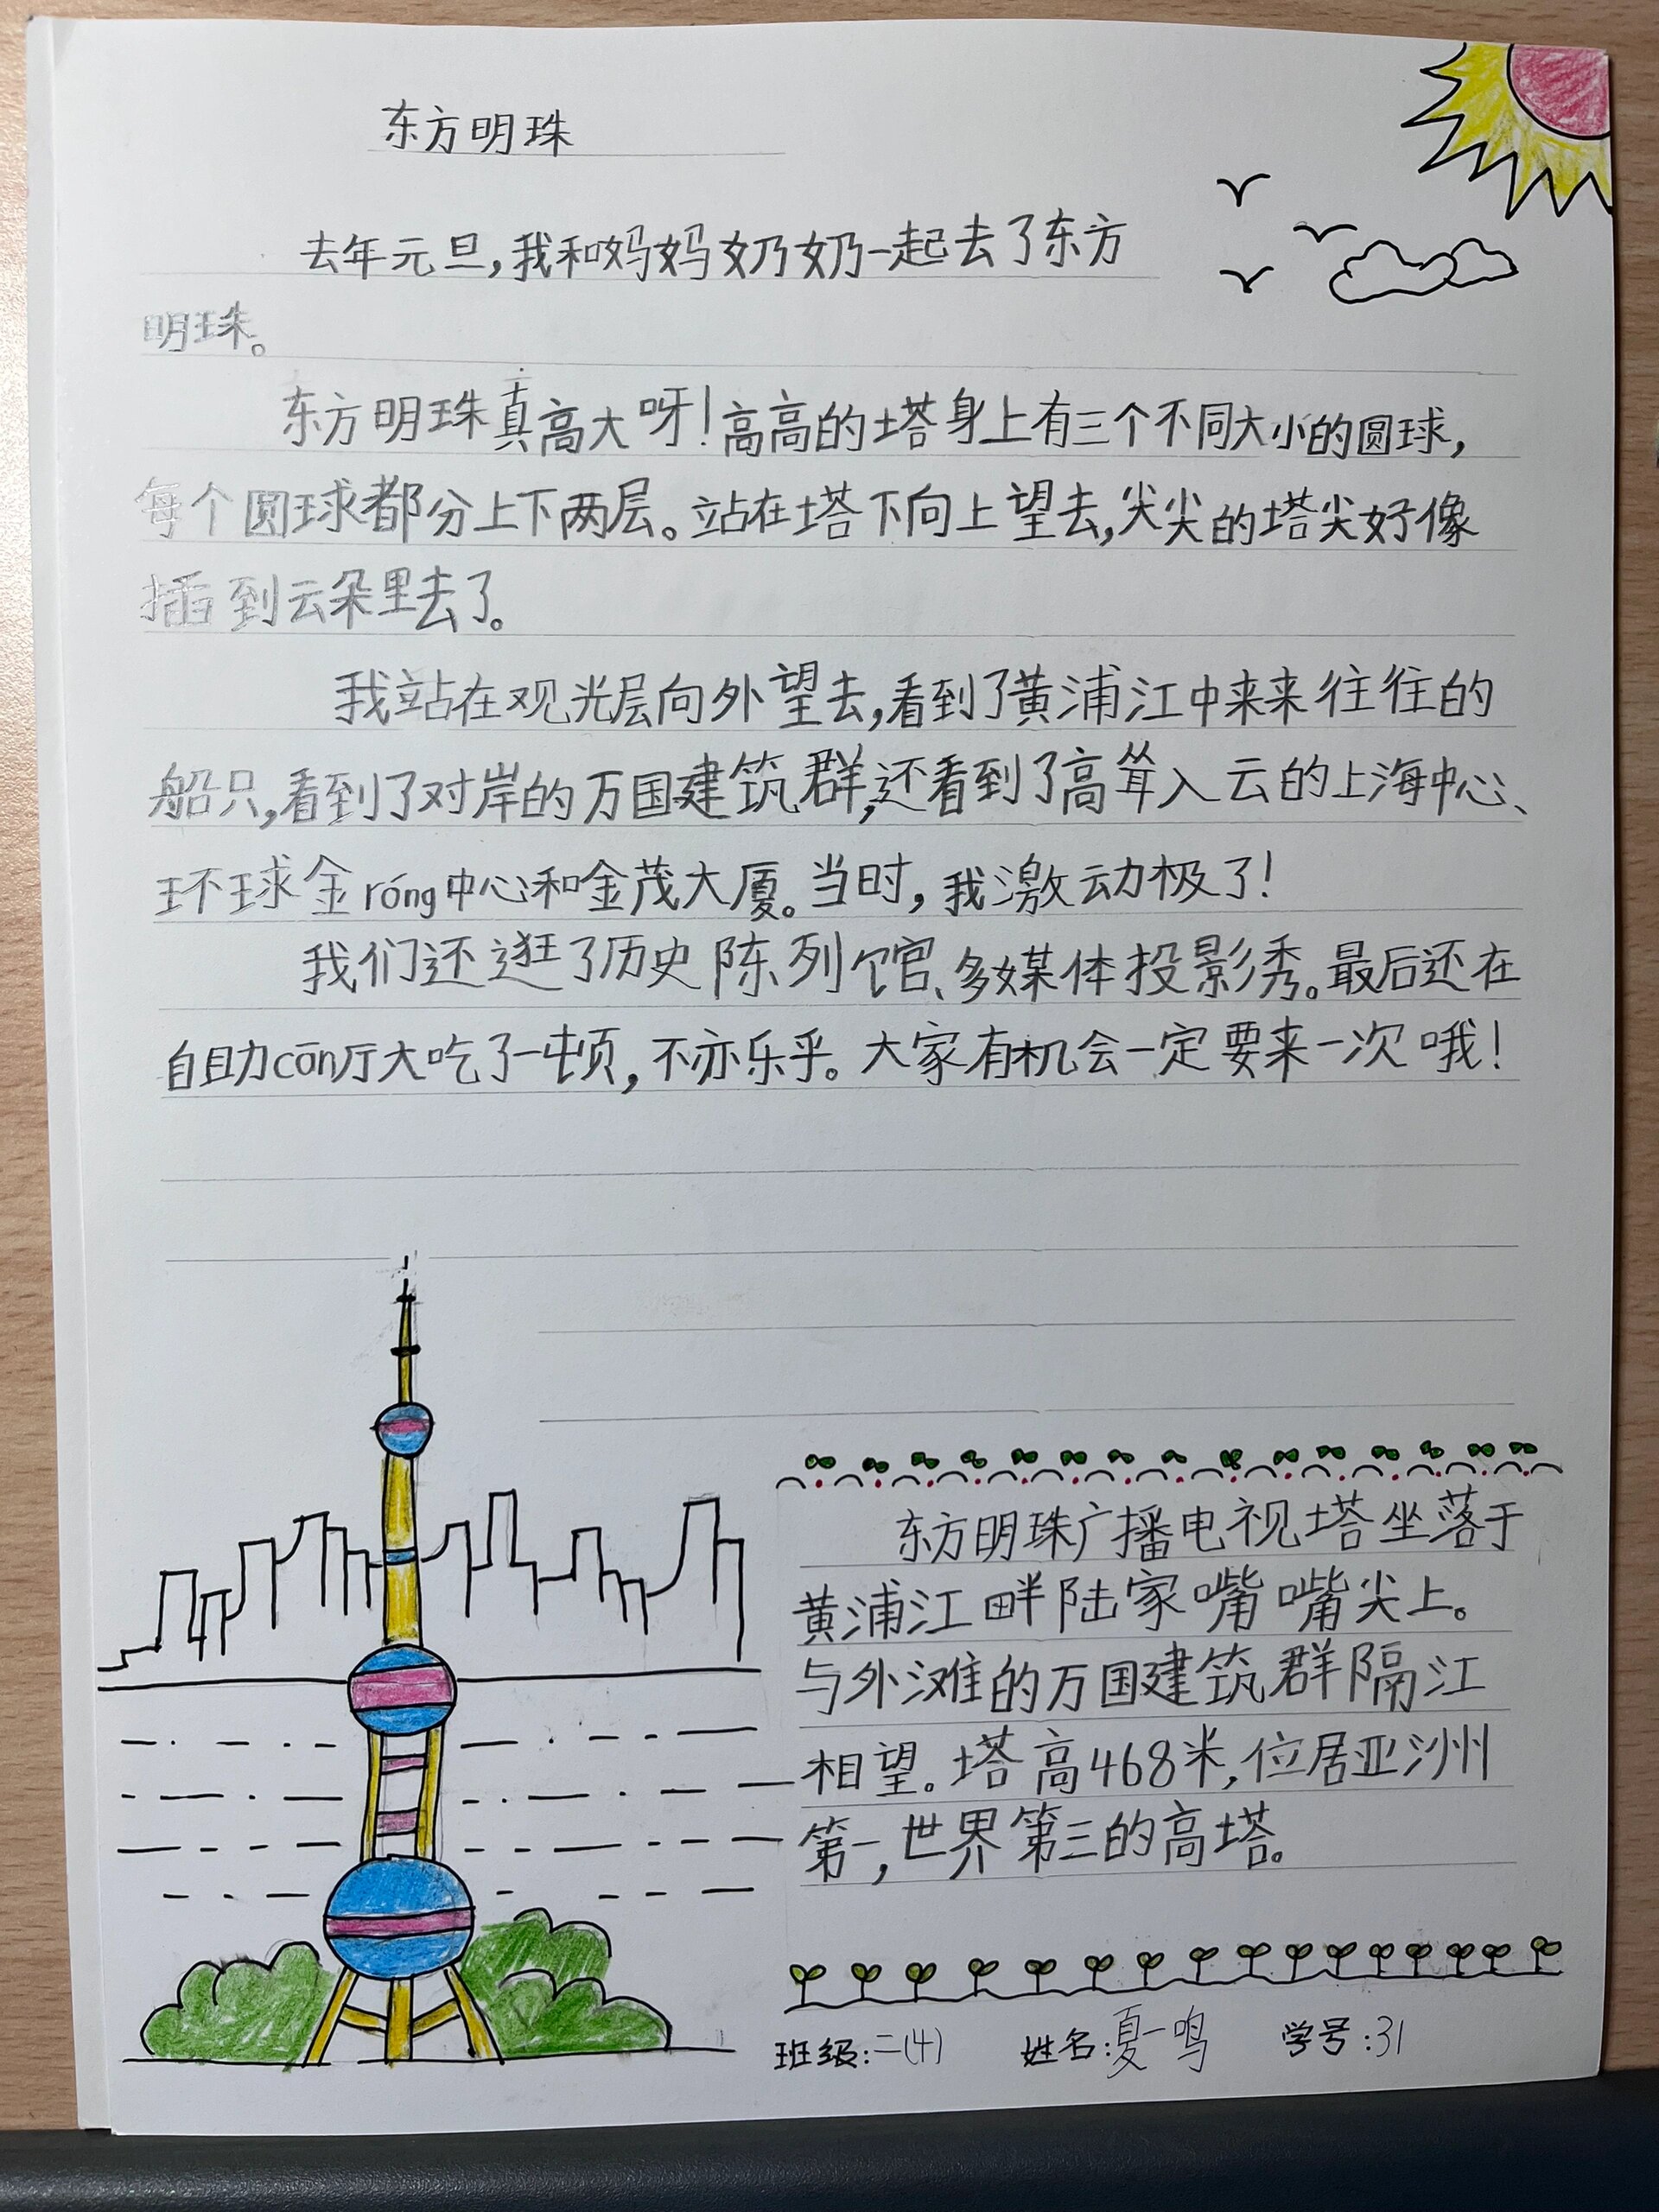 东方明珠
去年元旦，我和妈妈奶奶一起去了东方
明珠。
东方明珠真高大呀！高高的塔身上有三个不同大小的圆球，
每个圆球都分上下两层。站在塔下向上望去，尖尖的塔尖好像
插到云朵里去了。
我站在观光层向外望去，看到了黄浦江中来来往往的
船只，看到了对岸的万国建筑群，还看到了高耸入云的上海中心、
环球金róng中心和金茂大厦。当时，我激动极了！
我们还逛了历史陈列馆、多媒体投影秀。最后还在
自助cān厅大吃了一顿，不亦乐乎。大家有机会一定要来一次哦！
东方明珠广播电视塔坐落于
黄浦江畔陆家嘴嘴尖上。
与外滩的万国建筑群隔江
相望。塔高468米，位居亚洲
第一，世界第三的高塔。
班级：二(4) 姓名：夏一鸣 学号：31